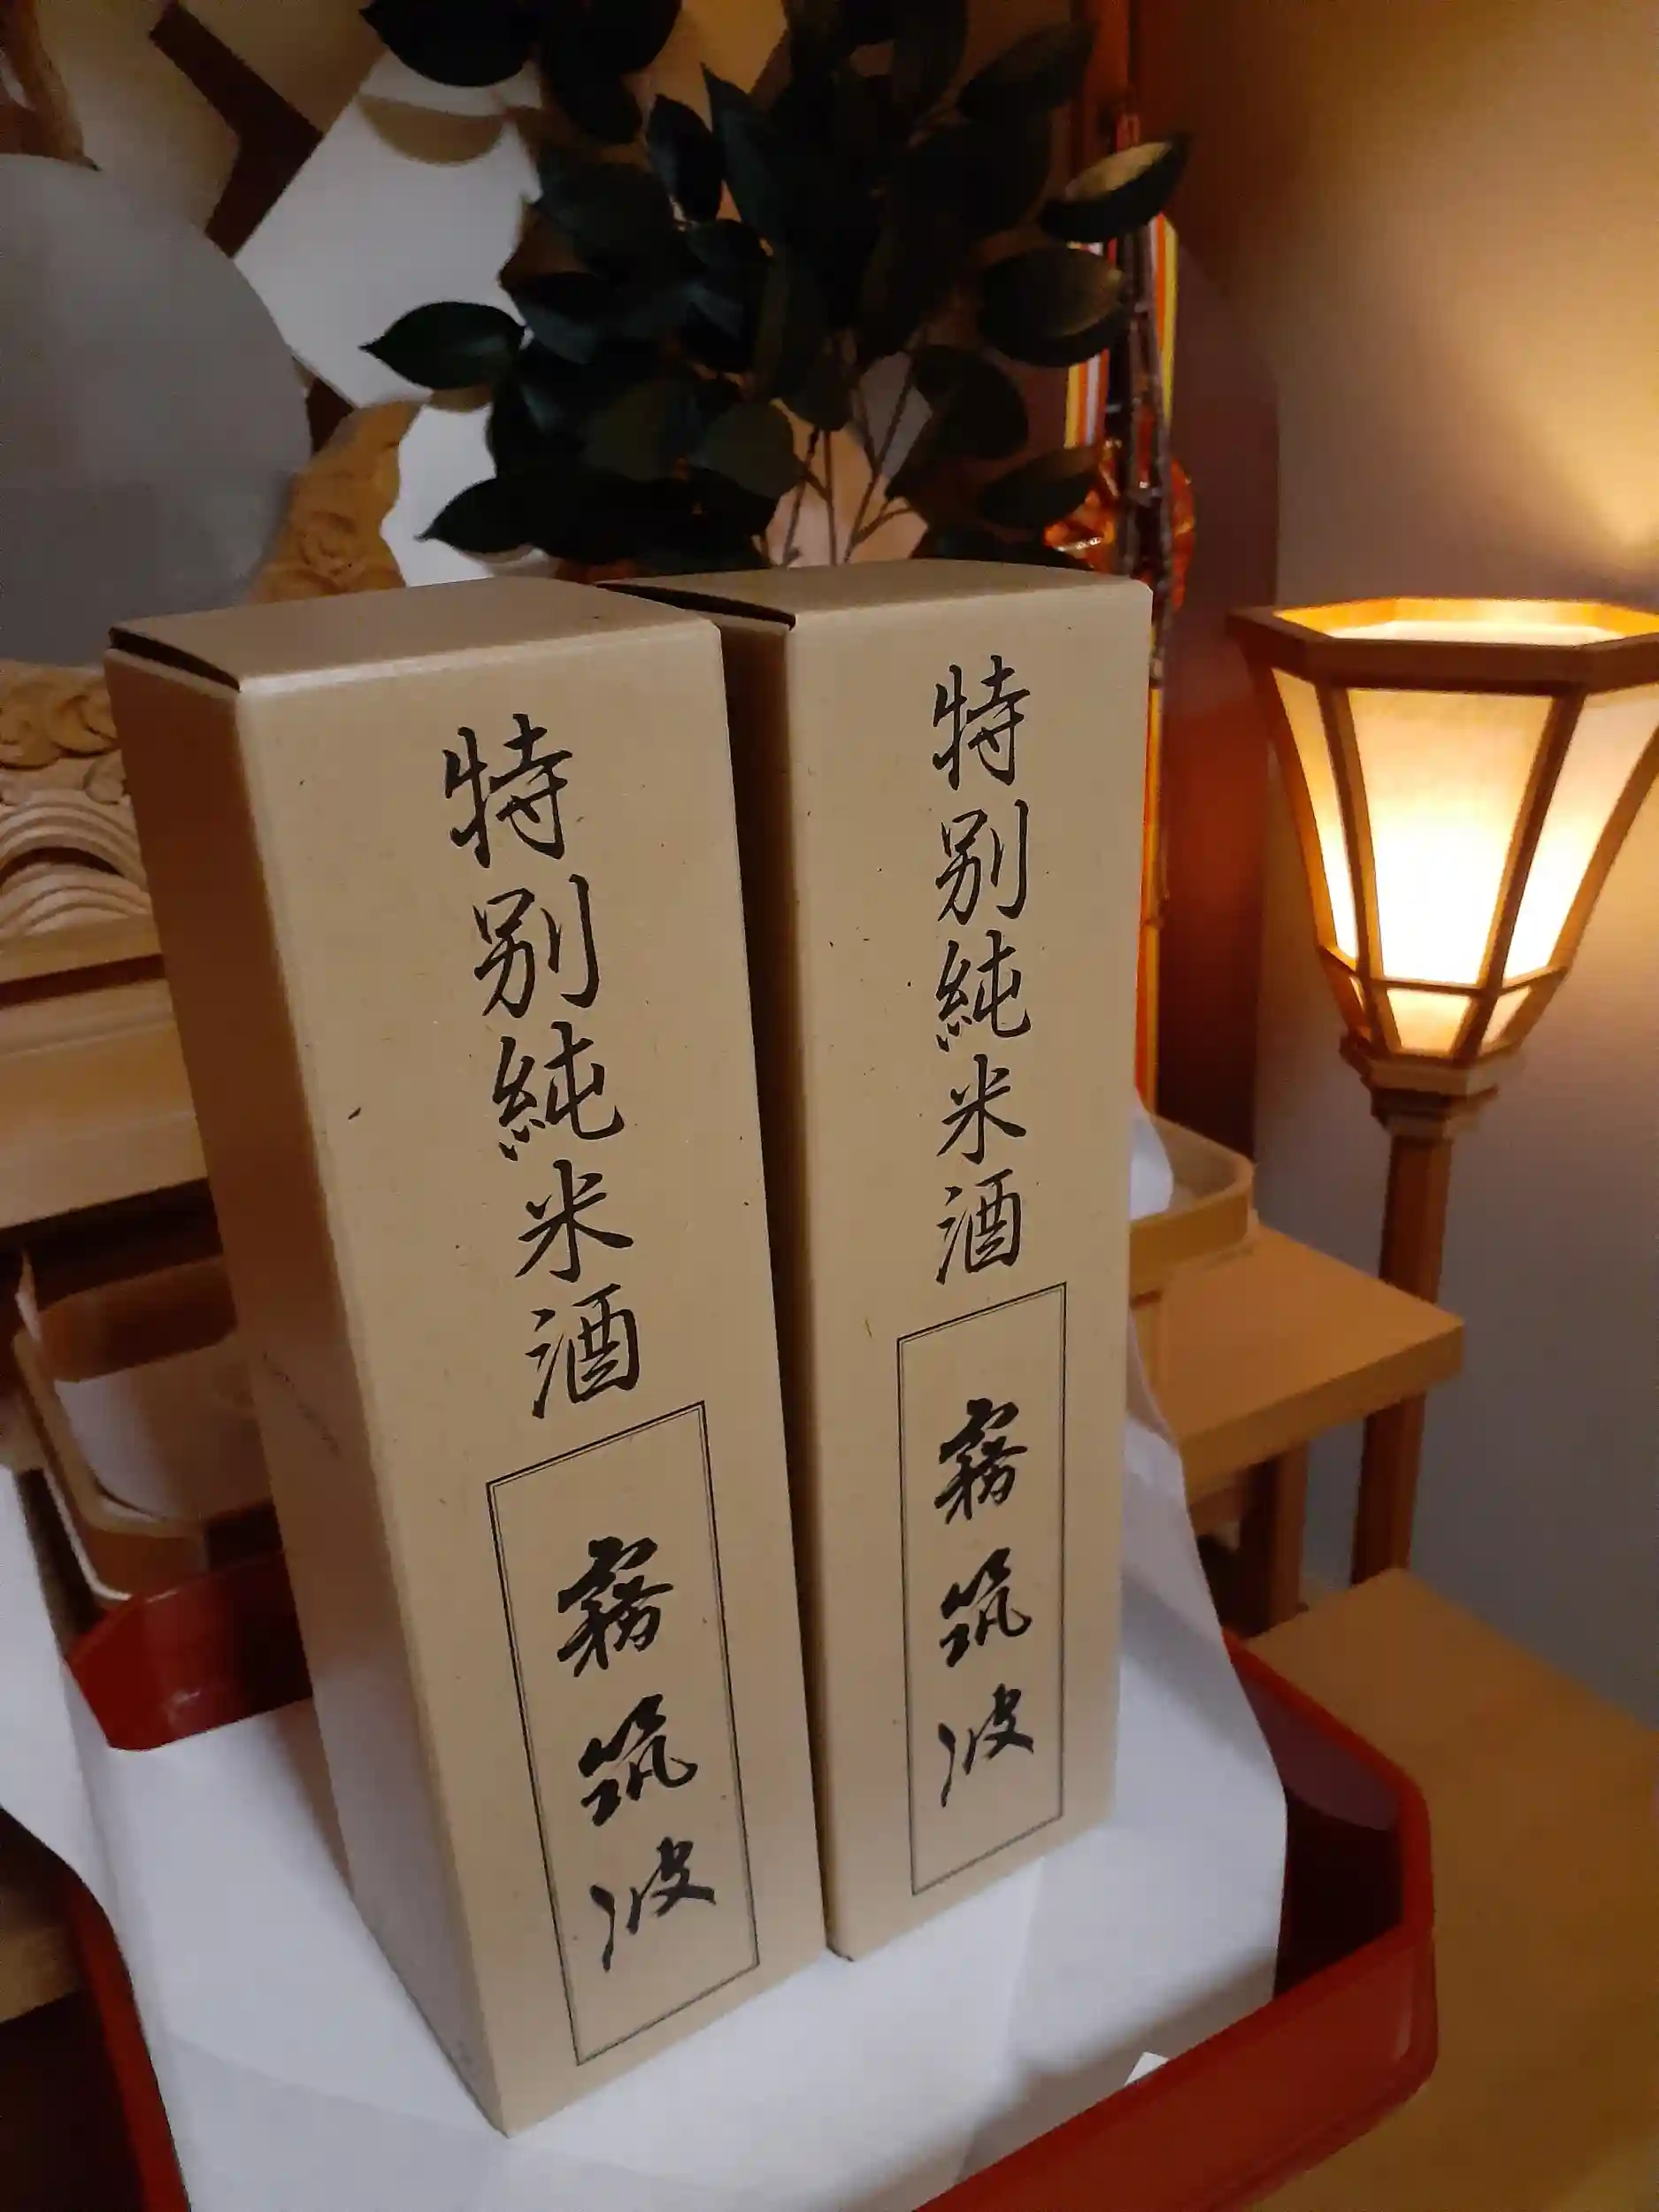 特別純米酒
霧筑波
特別純米酒
霧筑波